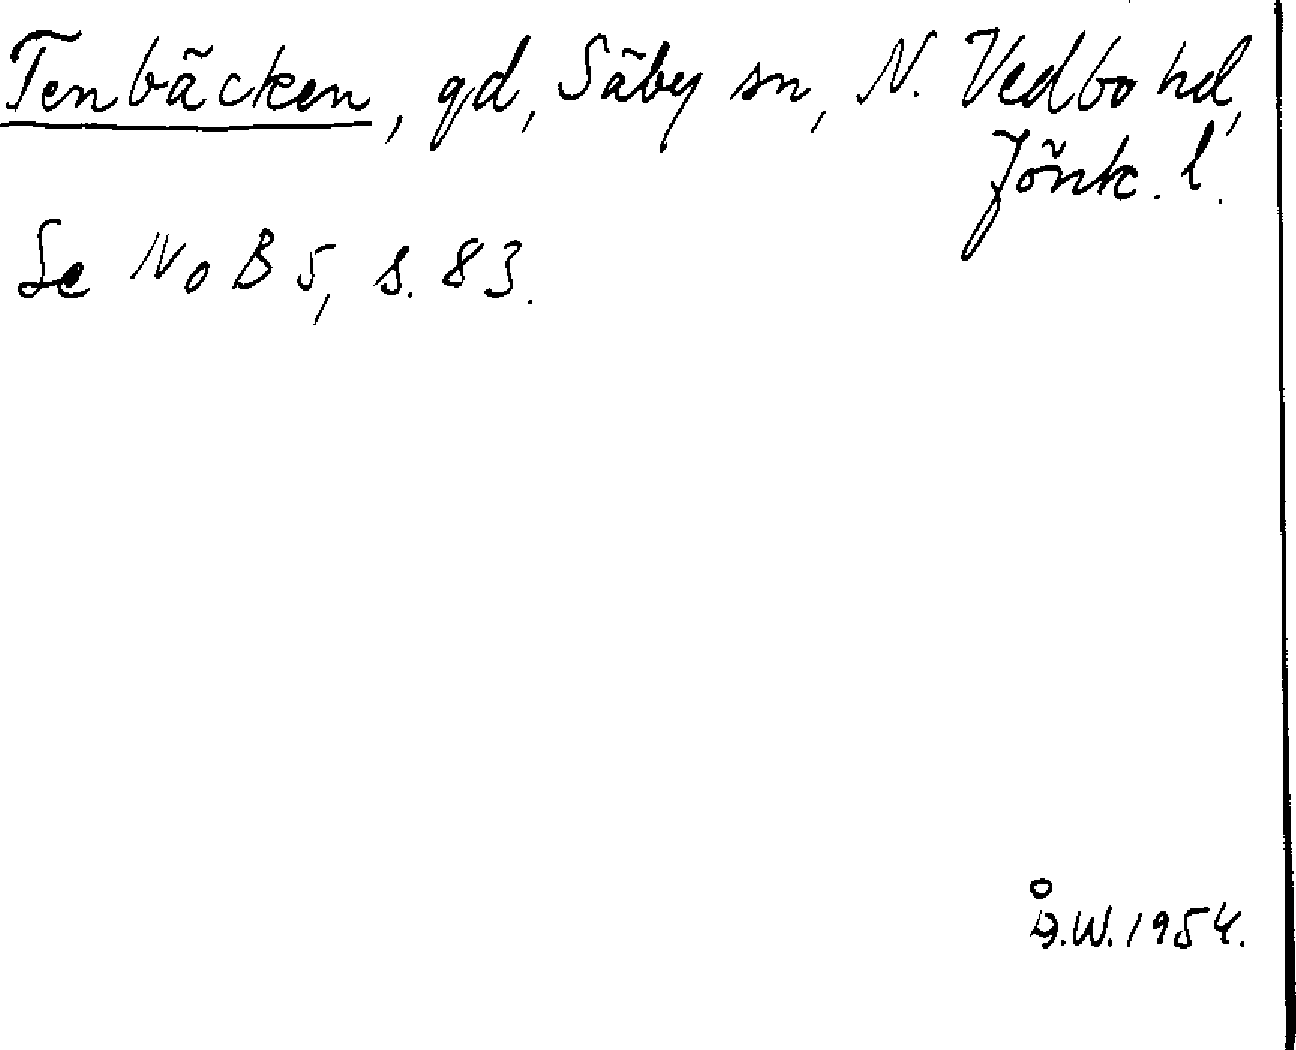 Tenbäcken, gd, Säby sn, N. Vedbo hd,
Jönk. l.
Se NoB 5, s. 83.
Å.W. 1954.